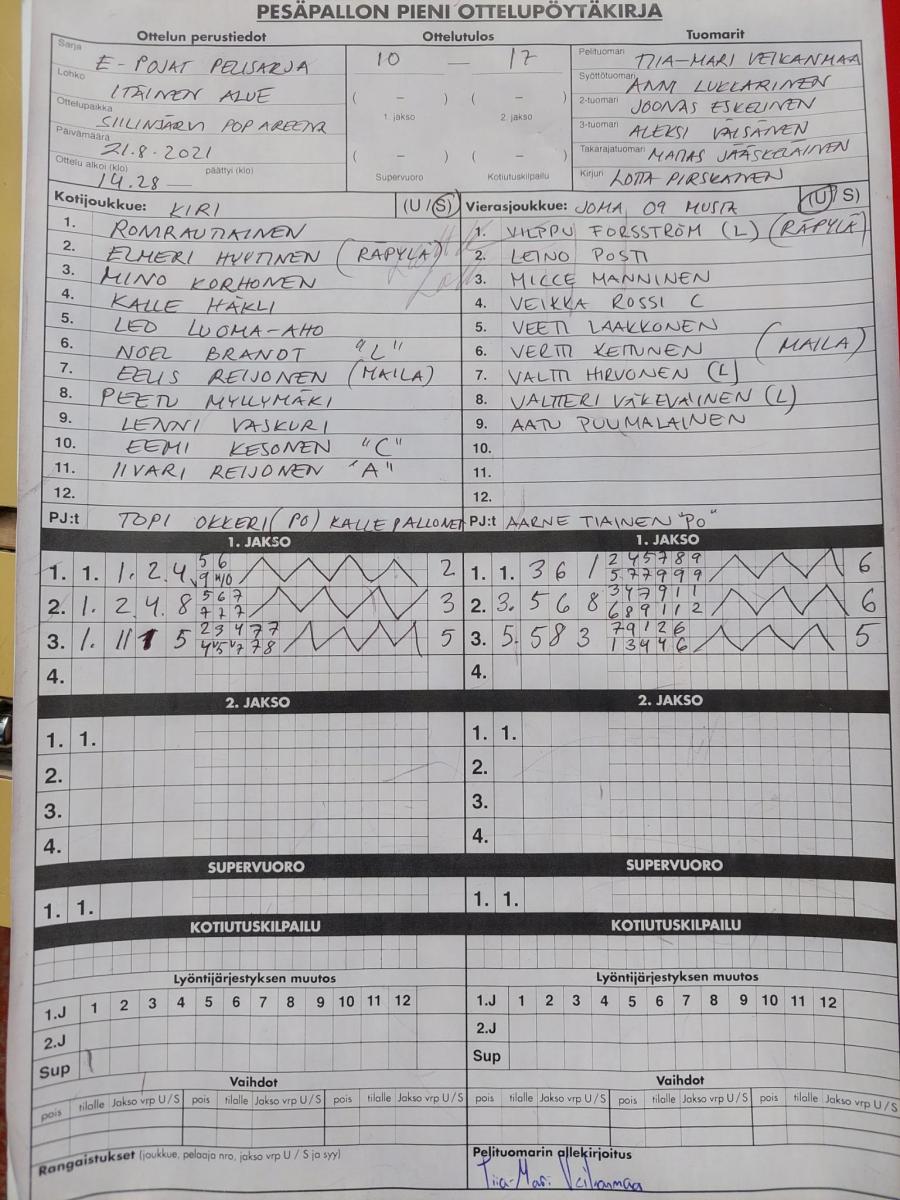 PESÄPALLON PIENI OTTELUPÖYTÄKIRJA
Ottelun perustiedot Ottelutulos Tuomarit
Sarja E-POJAT PELISARJA
Lohko ITÄINEN ALUE
Ottelupaikka SIILINJÄRVI POP AREENA
Päivämäärä 21.8.2021
Ottelu alkoi (klo) 14.28 — päättyi (klo)
10 — 17
( – ) ( – )
1. jakso 2. jakso
( – ) ( – )
Supervuoro Kotiutuskilpailu
Pelituomari TIIA-MARI VEIKANMAA
Syöttötuomari ANNI LUKKARINEN
2-tuomari JOONAS ESKELINEN
3-tuomari ALEKSI VÄISÄNEN
Takarajatuomari JÄÄSKELÄINEN
Kirjuri LOTTA PIRSKANEN
Kotijoukkue: KIRI (U / S)
1. ROMRAUTIAINEN
2. ELMERI HYYTINEN (RÄPYLÄ)
3. MINO KORHONEN
4. KALLE HÄKLI
5. LEO LUOMA-AHO
6. NOEL BRANDT "L"
7. EELIS REIJONEN (MAILA)
8. PEETU MYLLYMÄKI
9. LENNI VASKURI
10. EEMI KESONEN "C"
11. IIVARI REIJONEN "A"
12.
PJ:t TOPI OKKERI (PO) KALLE PALLONEN
Vierasjoukkue: JOMA 09 MUSTA (U / S)
1. VILPPU FORSSTRÖM (L) (RÄPYLÄ)
2. LEINO POSTI
3. MICCE MANNINEN
4. VEIKKA ROSSI C
5. VEETI LAAKKONEN
6. VERTTI KETTUNEN (MAILA)
7. VALTTI HIRVONEN (L)
8. VALTTERI VÄKEVÄINEN (L)
9. AATU PUUMALAINEN
10.
11.
12.
PJ:t AARNE TIAINEN "PO"
1. JAKSO
1. 1. 1. 2. 4. 5 6 2
2. 1. 2. 4. 8 5 6 7 3
7 7 7
3. 1. 11 5 2 3 4 7 7 5
4.
1. JAKSO
1. 1. 3 6 1 2 4 5 7 8 9 6
5 7 7 9 9 9
2. 3. 5 6 8 3 4 7 9 1 1 6
6 8 9 1 1 2
3. 5. 5 8 3 7 9 1 2 6 5
1 3 4 4 6
4.
2. JAKSO
1. 1.
2.
3.
4.
2. JAKSO
1. 1.
2.
3.
4.
SUPERVUORO
1. 1.
SUPERVUORO
1. 1.
KOTIUTUSKILPAILU
KOTIUTUSKILPAILU
Lyöntijärjestyksen muutos
1.J 1 2 3 4 5 6 7 8 9 10 11 12
2.J
Sup
Lyöntijärjestyksen muutos
1.J 1 2 3 4 5 6 7 8 9 10 11 12
2.J
Sup
Vaihdot
pois tilalle Jakso vrp U / S pois tilalle Jakso vrp U / S pois tilalle Jakso vrp U / S
Vaihdot
pois tilalle Jakso vrp U / S pois tilalle Jakso vrp U / S pois tilalle Jakso vrp U / S
Rangaistukset (joukkue, pelaaja nro, jakso vrp U / S ja syy)
Pelituomarin allekirjoitus
Tiia-Mari Veikanmaa